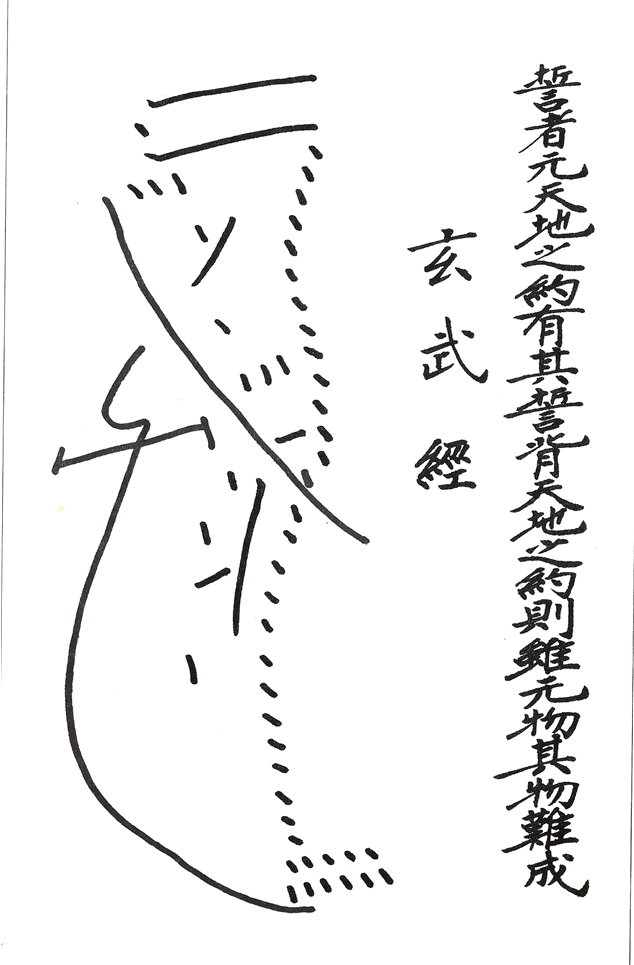 誓者元天地之約有其誓背天地之約則雖元物其物難成
玄武經